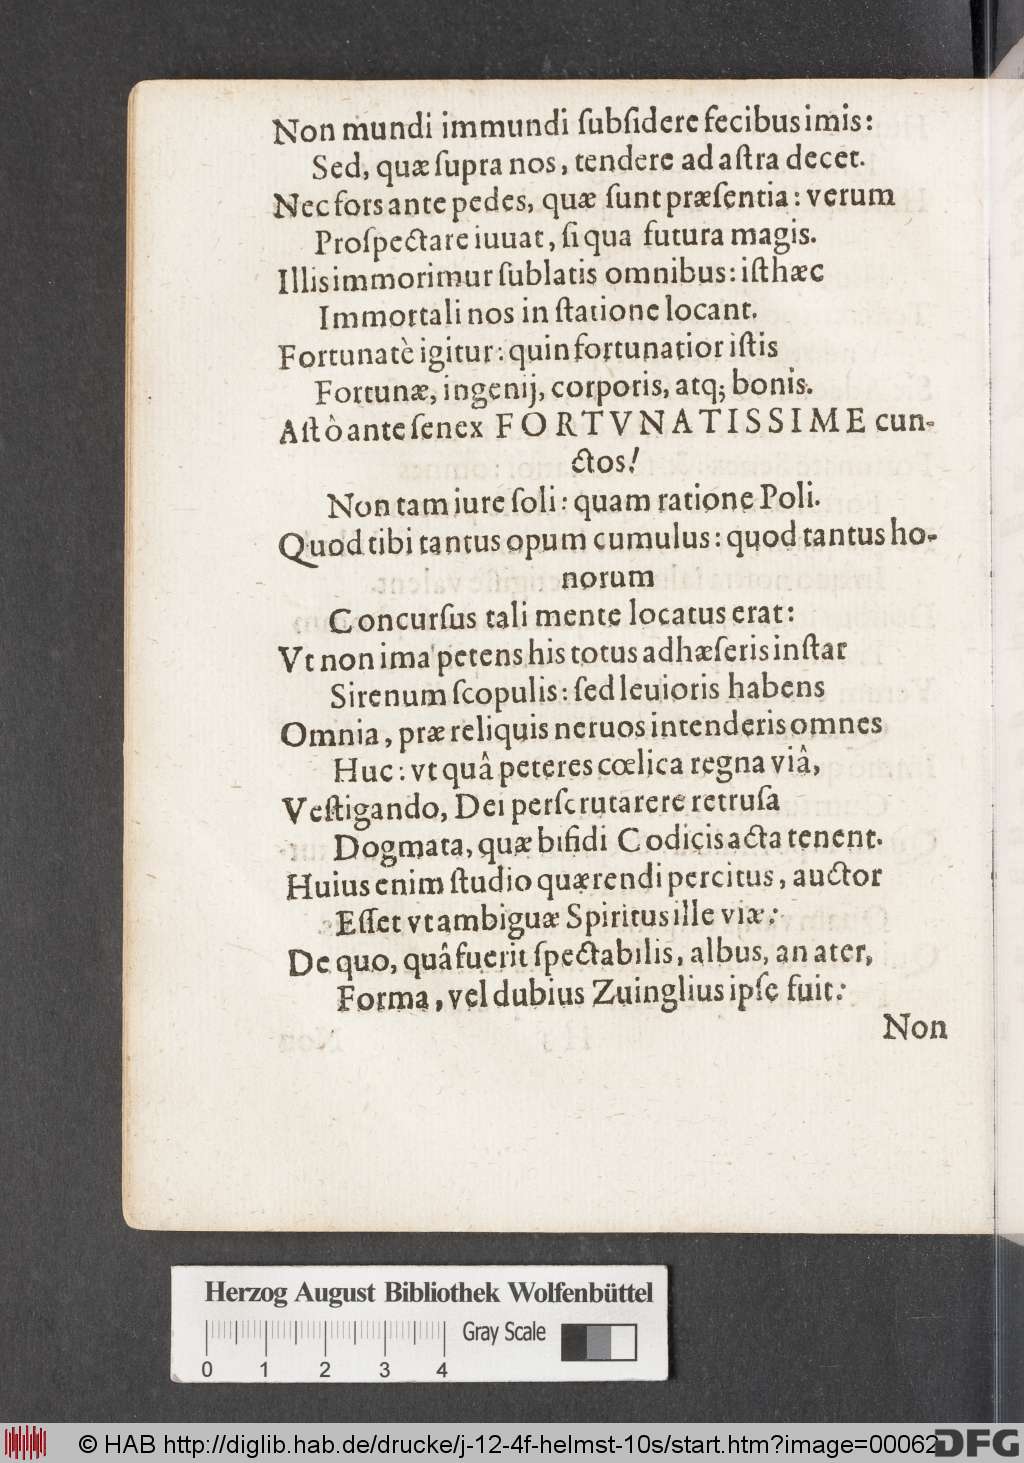 Non mundi immundi ſubſidere fecibus imis:
Sed, quæ ſupra nos, tendere ad aſtra decet.
Nec fors ante pedes, quæ ſunt præſentia: verum
Proſpectare iuuat, ſi qua futura magis.
Illis immorimur ſublatis omnibus: iſthæc
Immortali nos in ſtatione locant.
Fortunatè igitur: quin fortunatior iſtis
Fortunæ, ingenij, corporis, atq; bonis.
Aſt ò ante ſenex FORTVNATISSIME cun-
ctos!
Non tam iure ſoli: quam ratione Poli.
Quod tibi tantus opum cumulus: quod tantus ho-
norum
Concurſus tali mente locatus erat:
Vt non ima petens his totus adhæſeris inſtar
Sirenum ſcopulis: ſed leuioris habens
Omnia, præ reliquis neruos intenderis omnes
Huc: vt quâ peteres cœlica regna viâ,
Veſtigando, Dei perſcrutarere retruſa
Dogmata, quæ bifidi Codicis acta tenent.
Huius enim ſtudio quærendi percitus, auctor
Eſſet vt ambiguæ Spiritus ille viæ:
De quo, quâ fuerit ſpectabilis, albus, an ater,
Forma, vel dubius Zuinglius ipſe fuit:
Non
Herzog August Bibliothek Wolfenbüttel
Gray Scale
0 1 2 3 4
© HAB http://diglib.hab.de/drucke/j-12-4f-helmst-10s/start.htm?image=00062
DFG